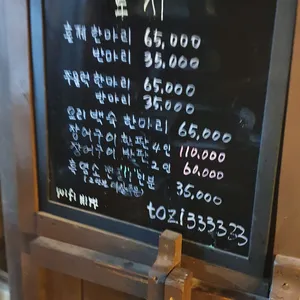 훈제 한마리 65,000
반마리 35,000
주물럭 한마리 65,000
반마리 35,000
요리 백숙 한마리 65,000
장어구이 한판 4인 110,000
장어구이 반판 2인 60,000
흑염소 1인분
35,000
wifi
tozi333333